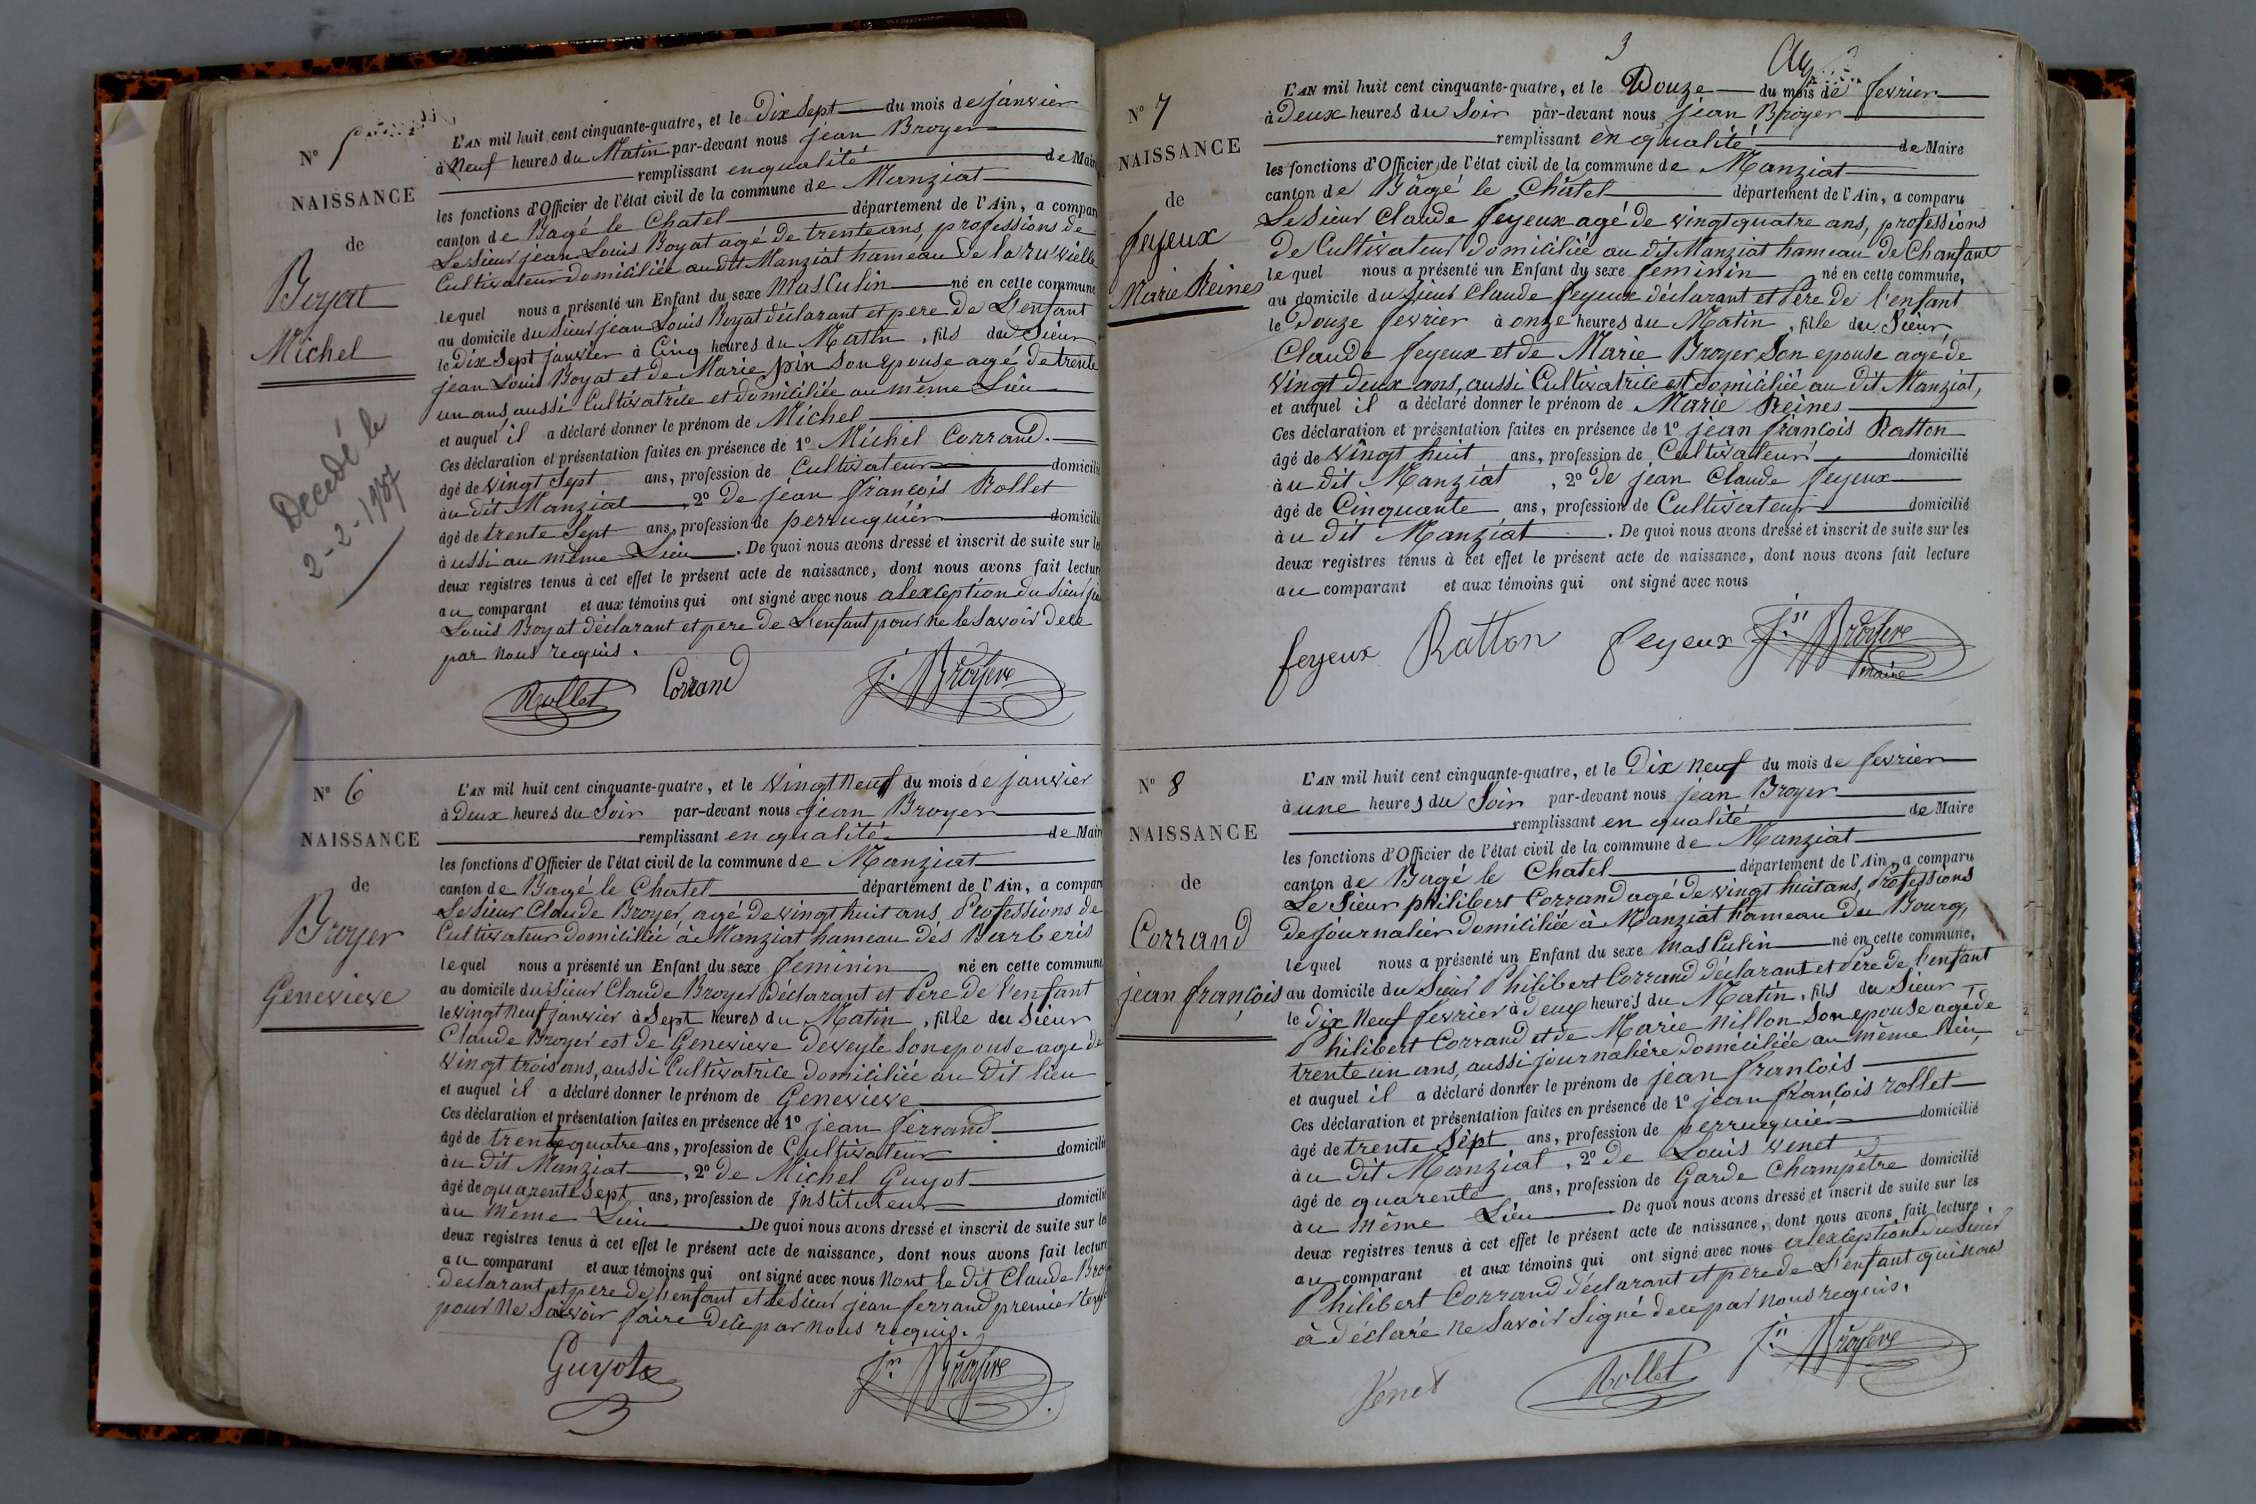 N° 5
NAISSANCE
de
Boyat
Michel
Decedé le
2-2-1937
L'AN mil huit cent cinquante-quatre, et le Dix Sept du mois de janvier
à Neuf heures du Matin par-devant nous jean Broyer
remplissant en qualité de Maire
les fonctions d'Officier de l'état civil de la commune de Manziat
canton de Bagé le Chatel département de l'Ain, a comparu
Le Sieur jean Louis Boyat agé de trente ans, professions de
Cultivateur domiciliée au dit Manziat hameau de la ruvielle
lequel nous a présenté un Enfant du sexe Masculin né en cette commune
au domicile du Sieur jean Louis Boyat déclarant et pere de L'enfant
le Dix Sept janvier à Cinq heures du Matin, fils du Sieur
jean Louis Boyat et de Marie pin Son Epouse agé de trente
un ans, aussi Cultivatrice et domiciliée au même Lieu
et auquel il a déclaré donner le prénom de Michel
Ces déclaration et présentation faites en présence de 1° Michel Corrand.
âgé de vingt Sept ans, profession de Cultivateur domicilié
au dit Manziat, 2° De jean françois Rollet
âgé de trente Sept ans, profession de perruquiér domicilié
aussi au même Lieu. De quoi nous avons dressé et inscrit de suite sur les
deux registres tenus à cet effet le présent acte de naissance, dont nous avons fait lecture
au comparant et aux témoins qui ont signé avec nous alexception du Sieur jean
Louis Boyat déclarant et pere de L'enfant pour ne le Savoir de ce
par nous requis.
Rollet Corrand J. Broyere
N° 6
NAISSANCE
de
Broyer
Genevieve
L'AN mil huit cent cinquante-quatre, et le vingt Neuf du mois de janvier
à Deux heures du Soir par-devant nous jean Broyer
remplissant en qualité de Maire
les fonctions d'Officier de l'état civil de la commune de Manziat
canton de Bagé le Chatel département de l'Ain, a comparu
Le Sieur Claude Broyer, agé de vingt huit ans, Professions de
Cultivateur domiciliée à Manziat hameau des Barberis
lequel nous a présenté un Enfant du sexe feminin né en cette commune
au domicile du Sieur Claude Broyer déclarant et Pere de l'enfant
le vingt Neuf janvier à Sept heures du Matin, fille du Sieur
Claude Broyer est de Genevieve Deveyle Son epouse age de
vingt trois ans, aussi Cultivatrice domiciliée au Dit lieu
et auquel il a déclaré donner le prénom de Genevieve
Ces déclaration et présentation faites en présence de 1° jean ferrand
âgé de trente quatre ans, profession de Cultivateur domicilié
au Dit Manziat, 2° De Michel Guyot
âgé de quarente Sept ans, profession de jnstituteur domicilié
au même Lieu De quoi nous avons dressé et inscrit de suite sur les
deux registres tenus à cet effet le présent acte de naissance, dont nous avons fait lecture
au comparant et aux témoins qui ont signé avec nous Nont le dit Claude Broyer
declarant et pere de l'enfant et le Sieur jean ferrand premier
pour Ne Savoir faire De ce par Nous requis.
Guyot Jn Broyere
3
N° 7
NAISSANCE
de
feyeux
Marie Reines
L'AN mil huit cent cinquante-quatre, et le Douze du mois de fevrier
à Deux heures du Soir par-devant nous jean Broyer
remplissant en qualité de Maire
les fonctions d'Officier de l'état civil de la commune de Manziat
canton de Bàgé le Châtel département de l'Ain, a comparu
Le Sieur Claude feyeux agé de vingt quatre ans, professions
de Cultivateur domiciliée au dit Manziat hameau de Chanfant
lequel nous a présenté un Enfant du sexe feminin né en cette commune,
au domicile du Sieur Claude feyeux déclarant et Pere de l'enfant
le Douze fevrier à onze heures du Matin, fille du Sieur
Claude feyeux et de Marie Broyer Son epouse agé de
vingt Deux ans, aussi Cultivatrice est domiciliée au dit Manziat,
et auquel il a déclaré donner le prénom de Marie Reines
Ces déclaration et présentation faites en présence de 1° jean françois Ratton
âgé de vingt huit ans, profession de Cultivateur domicilié
au dit Manziat, 2° de jean Claude feyeux
âgé de Cinquante ans, profession de Cultivateur domicilié
au dit Manziat. De quoi nous avons dressé et inscrit de suite sur les
deux registres tenus à cet effet le présent acte de naissance, dont nous avons fait lecture
au comparant et aux témoins qui ont signé avec nous
feyeux Ratton feyeux Jn Broyere
maire
N° 8
NAISSANCE
de
Corrand
jean françois
L'AN mil huit cent cinquante-quatre, et le Dix Neuf du mois de fevrier
à une heures du Soir par-devant nous jean Broyer
remplissant en qualité de Maire
les fonctions d'Officier de l'état civil de la commune de Manziat
canton de Bagé le Chatel département de l'Ain, a comparu
Le Sieur philibert Corrand agé de vingt huit ans, Professions
de journalier domiciliée à Manziat hameau du Bourg,
lequel nous a présenté un Enfant du sexe Masculin né en cette commune,
au domicile du Sieur Philibert Corrand déclarant et Pere de l'enfant
le Dix Neuf fevrier à Deux heures du Matin, fils du Sieur
Philibert Corrand et de Marie Nillon Son epouse agé de
trente un ans, aussi journalière domiciliée au même lieu,
et auquel il a déclaré donner le prénom de jean françois
Ces déclaration et présentation faites en présence de 1° jean françois rollet
âgé de trente Sept ans, profession de perruquiér domicilié
au Dit Manziat, 2° de Louis venet
âgé de quarente ans, profession de Garde Champêtre domicilié
au même Lieu De quoi nous avons dressé et inscrit de suite sur les
deux registres tenus à cet effet le présent acte de naissance, dont nous avons fait lecture
au comparant et aux témoins qui ont signé avec nous alexception du Sieur
Philibert Corrand déclarant et pere de L'enfant qui nous
à déclaré ne Savoir Signé de ce par nous requis.
Venet Rollet Jn Broyere